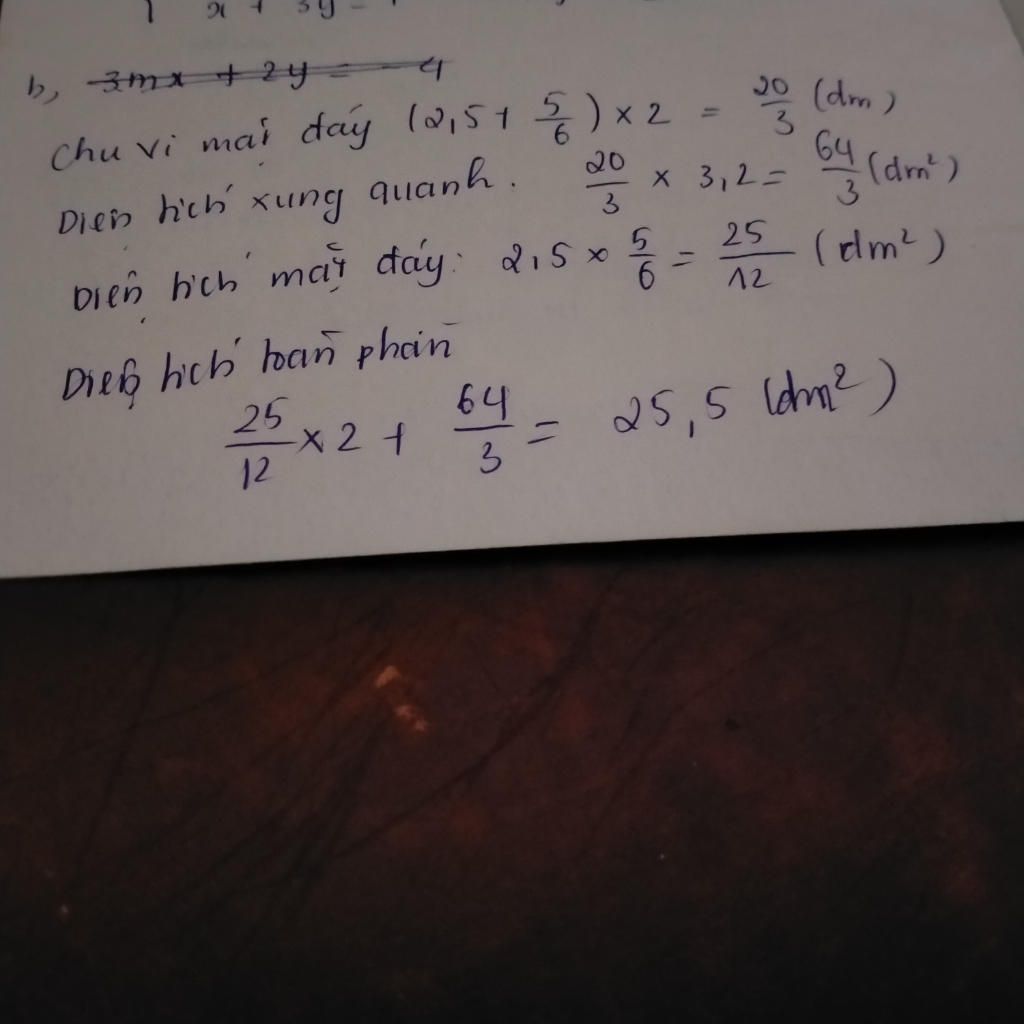 x + 3y =
b, 3mx + 2y = -4
Chu vi mặt đáy (2,5 + 5/6) × 2 = 20/3 (dm)
Diện tích xung quanh. 20/3 × 3,2 = 64/3 (dm²)
Diện tích mặt đáy: 2,5 × 5/6 = 25/12 (dm²)
Diện tích toàn phần
25/12 × 2 + 64/3 = 25,5 (dm²)